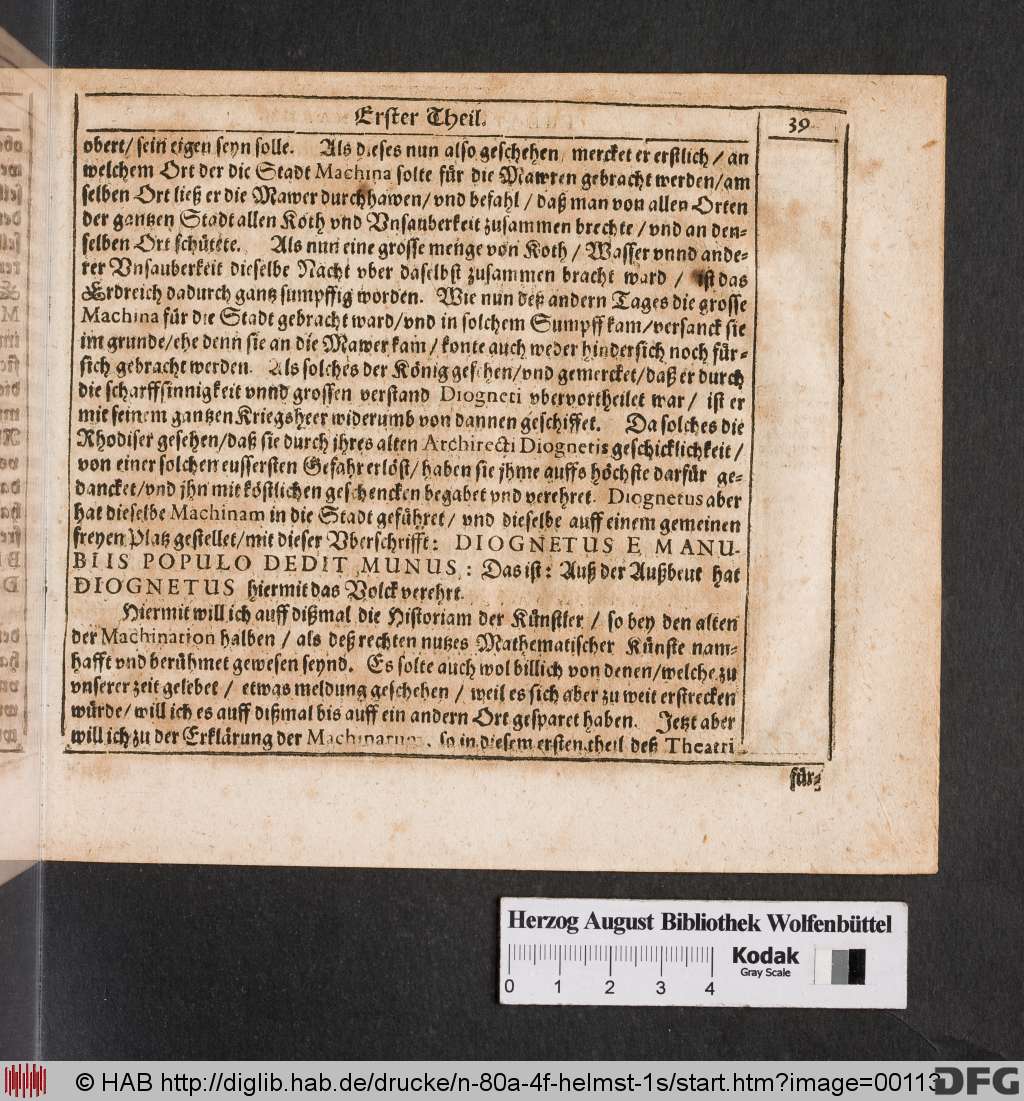 Erster Theil.
39
obert/ sein eigen seyn solle. Als dieses nun also geschehen/ mercket er erstlich / an
welchem Ort der die Stadt Machina solte für die Mawren gebracht werden/am
selben Ort ließ er die Mawer durchhawen/ vnd befahl / daß man von allen Orten
der gantzen Stadt allen Koth vnd Vnsauberkeit zusammen brechte / vnd an den-
selben Ort schütete. Als nun eine grosse menge von Koth / Wasser vnnd ande-
rer Vnsauberkeit dieselbe Nacht vber daselbst zusammen bracht ward / ist das
Erdreich dadurch gantz sumpffig worden. Wie nun deß andern Tages die grosse
Machina für die Stadt gebracht ward/vnd in solchem Sumpff kam/versanck sie
im grunde/ehe denn sie an die Mawer kam/ konte auch weder hindersich noch für-
sich gebracht werden. Als solches der König gesehen/vnd gemercket/daß er durch
die scharffsinnigkeit vnnd grossen verstand Diogneti vbervortheilet war/ ist er
mit seinem gantzen Kriegsheer widerumb von dannen geschiffet. Da solches die
Rhodiser gesehen/daß sie durch jhres alten Architecti Diognetis geschicklichkeit/
von einer solchen eussersten Gefahr erlöst/ haben sie jhme auffs höchste darfür ge-
dancket/vnd jhn mit köstlichen geschencken begabet vnd verehret. Diognetus aber
hat dieselbe Machinam in die Stadt geführet/ vnd dieselbe auff einem gemeinen
freyen Platz gestellet/mit dieser Vberschrifft: DIOGNETUS E MANU-
BIIS POPULO DEDIT MUNUS: Das ist: Auß der Außbeut hat
DIOGNETUS hiermit das Volck verehrt.
Hiermit will ich auff dißmal die Historiam der Künstler / so bey den alten
der Machination halben / als deß rechten nutzes Mathematischer Künste nam-
hafft vnd berühmet gewesen seynd. Es solte auch wol billich von denen/welche zu
vnserer zeit gelebet / etwas meldung geschehen / weil es sich aber zu weit erstrecken
würde/ will ich es auff dißmal bis auff ein andern Ort gesparet haben. Jetzt aber
will ich zu der Erklärung der Machinarum, so in diesem ersten theil deß Theatri
für-
Herzog August Bibliothek Wolfenbüttel
Kodak
Gray Scale
0 1 2 3 4
© HAB http://diglib.hab.de/drucke/n-80a-4f-helmst-1s/start.htm?image=00113
DFG